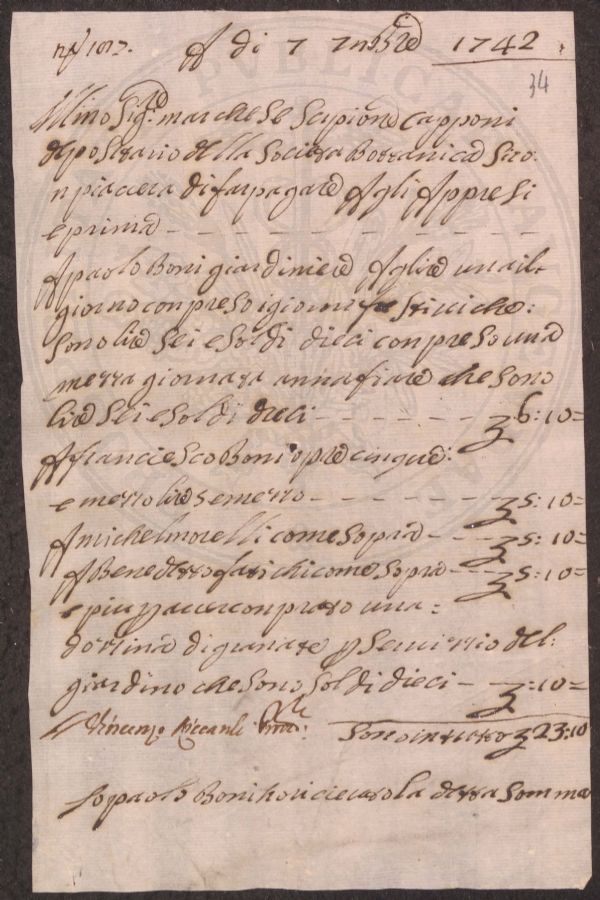 A di 7 7mbre 1742
34
Illmo Sigre marchese Scipione Capponi
depositario della Societa Bottanica
piacera di far pagare Agli Appresi
e prima
A paolo Boni giardiniere
giorno conpreso i giorni festivi che:
sono lire sei e soldi dieci conpreso una
mezza giornata annafiare che sono
lire sei e soldi dieci 6:10=
A franciesco Boni opre cinque:
e mezzo lire 5 e mezzo 5:10=
A michel morelli come sopra 5:10=
A Benedetto come sopra 5:10=
e piu p aver conprato una=
dozzina di granate p servizzio del:
giardino che sono soldi dieci :10=
Vincenzo Riccardi
sono in tutto 23:10
Io paolo Boni ho riceuto la detta somma